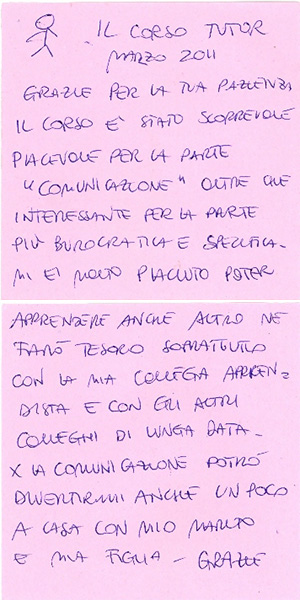 IL CORSO TUTOR
MARZO 2011
GRAZIE PER LA TUA PAZIENZA
IL CORSO E' STATO SCORREVOLE
PIACEVOLE PER LA PARTE
"COMUNICAZIONE" OLTRE CHE
INTERESSANTE PER LA PARTE
PIÙ BUROCRATICA E SPECIFICA.
MI E' MOLTO PIACIUTO POTER
APPRENDERE ANCHE ALTRO NE
FARÒ TESORO SOPRATTUTTO
CON LA MIA COLLEGA APPREN=
DISTA E CON GLI ALTRI
COLLEGHI DI LUNGA DATA -
X LA COMUNICAZIONE POTRÒ
DIVERTIRMI ANCHE UN POCO
A CASA CON MIO MARITO
E MIA FIGLIA - GRAZIE